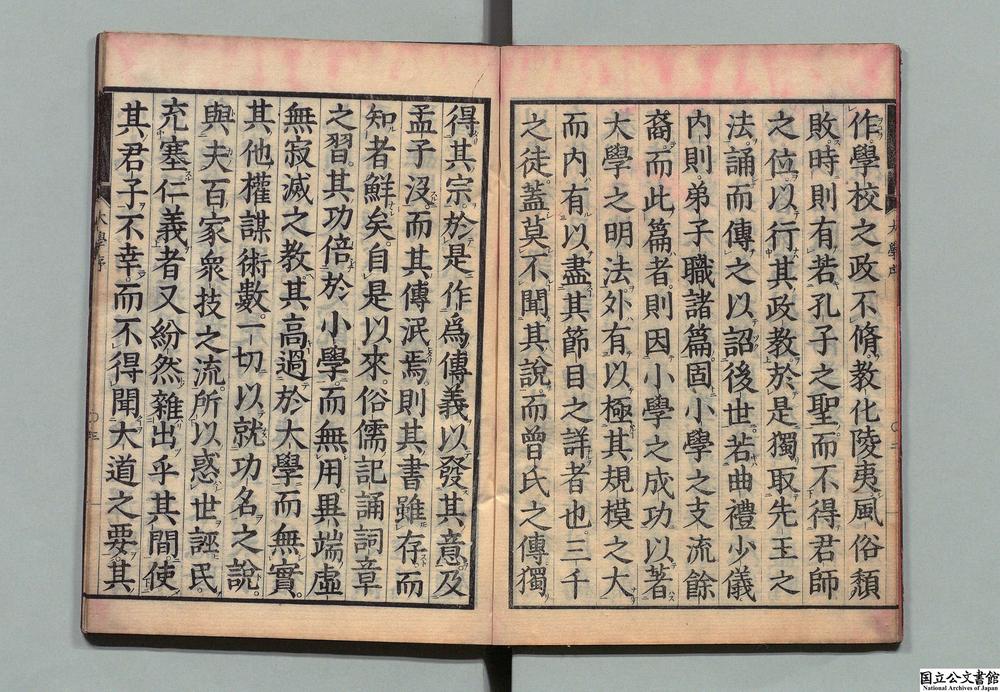 作。學校之政不脩。教化陵夷。風俗頽
敗。時則有若孔子之聖。而不得君師
之位。以行其政教。於是獨取先王之
法。誦而傳之。以詔後世。若曲禮少儀
内則弟子職諸篇。固小學之支流餘
裔。而此篇者。則因小學之成功。以著
大學之明法。外有以極其規模之大。
而内有以盡其節目之詳者也。三千
之徒。蓋莫不聞其說。而曾氏之傳獨
得其宗。於是作爲傳義。以發其意。及
孟子沒。而其傳泯焉。則其書雖存。而
知者鮮矣。自是以來。俗儒記誦詞章
之習。其功倍於小學。而無用。異端虛
無寂滅之教。其高過於大學。而無實。
其他權謀術數。一切以就功名之說。
與夫百家衆技之流。所以惑世誣民。
充塞仁義者。又紛然雜出乎其間。使
其君子不幸而不得聞大道之要。其
大學序
大學序
国立公文書館
National Archives of Japan